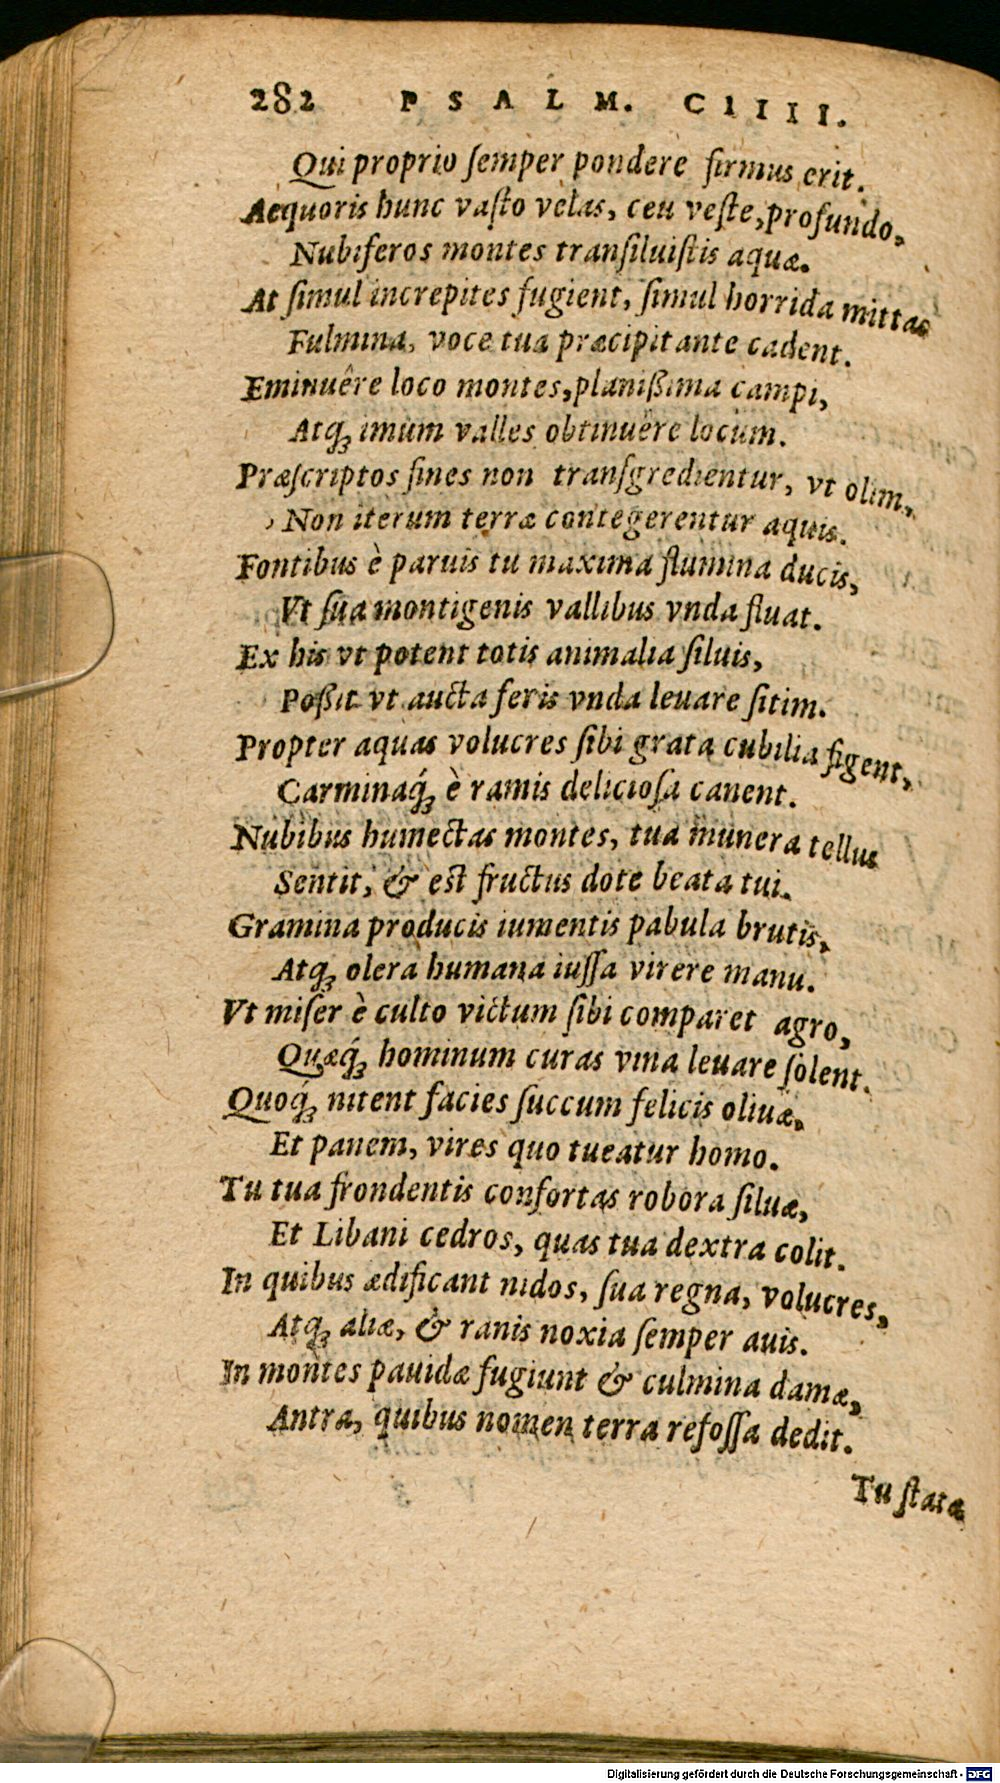 282 PSALM. CIIII.
Qui proprio ſemper pondere firmus erit.
Aequoris hunc vaſto velas, ceu veſte, profundo,
Nubiferos montes tranſiluiſtis aquæ.
At ſimul increpites fugient, ſimul horrida mittas
Fulmina, voce tua præcipitante cadent.
Eminuêre loco montes, planißima campi,
Atq́ꝫ imum valles obtinuêre locum.
Præſcriptos fines non tranſgredientur, vt olim,
Non iterum terræ contegerentur aquis.
Fontibus è paruis tu maxima flumina ducis,
Vt ſua montigenis vallibus vnda fluat.
Ex his vt potent totis animalia ſiluis,
Poßit vt aucta feris vnda leuare ſitim.
Propter aquas volucres ſibi grata cubilia figent,
Carminaq́ꝫ è ramis delicioſa canent.
Nubibus humectas montes, tua munera tellus
Sentit, & eſt fructus dote beata tui.
Gramina producis iumentis pabula brutis,
Atqꝫ olera humana iuſſa virere manu.
Vt miſer è culto victum ſibi comparet agro,
Quæq́ꝫ hominum curas vina leuare ſolent.
Quoq́ꝫ nitent facies ſuccum felicis oliuæ,
Et panem, vires quo tueatur homo.
Tu tua frondentis confortas robora ſiluæ,
Et Libani cedros, quas tua dextra colit.
In quibus ædificant nidos, ſua regna, volucres,
Atqꝫ aliæ, & ranis noxia ſemper auis.
In montes pauidæ fugiunt & culmina damæ,
Antra, quibus nomen terra refoſſa dedit.
Tu ſtata
Digitalisierung gefördert durch die Deutsche Forschungsgemeinschaft - DFG